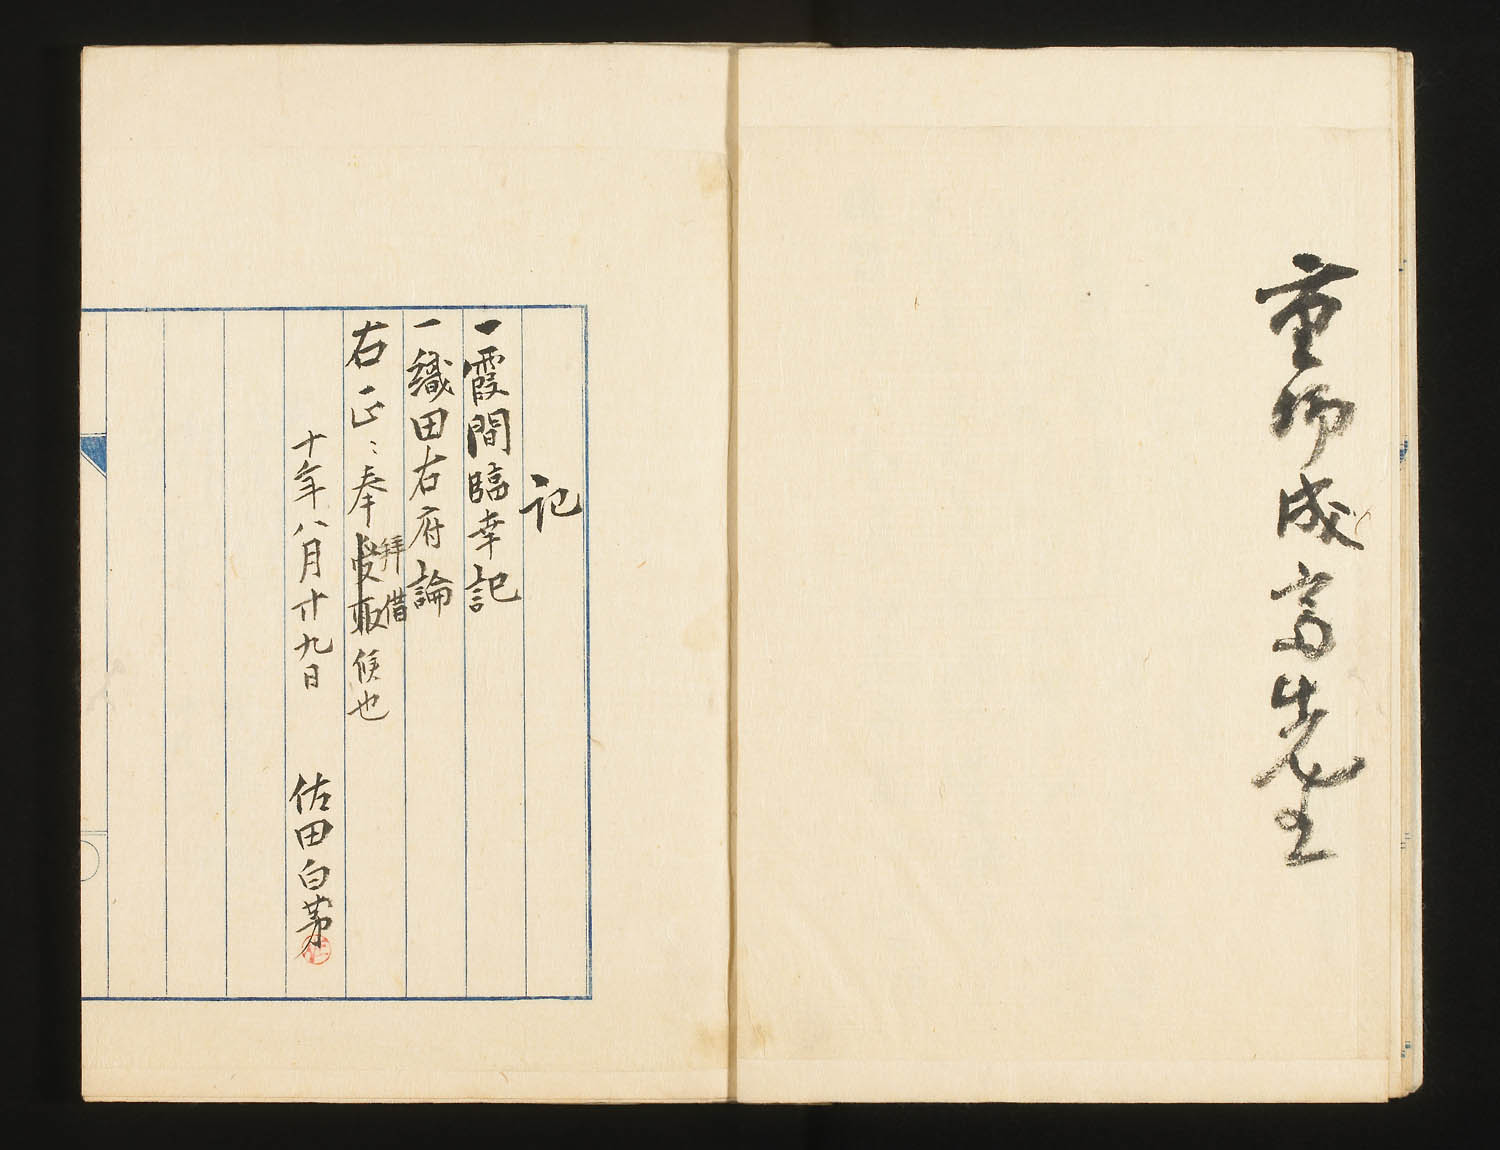 重野成斎先生
記
一霞間臨幸記
一織田右府論
右正ニ奉拝借候也
十年八月廿九日 佐田白茅